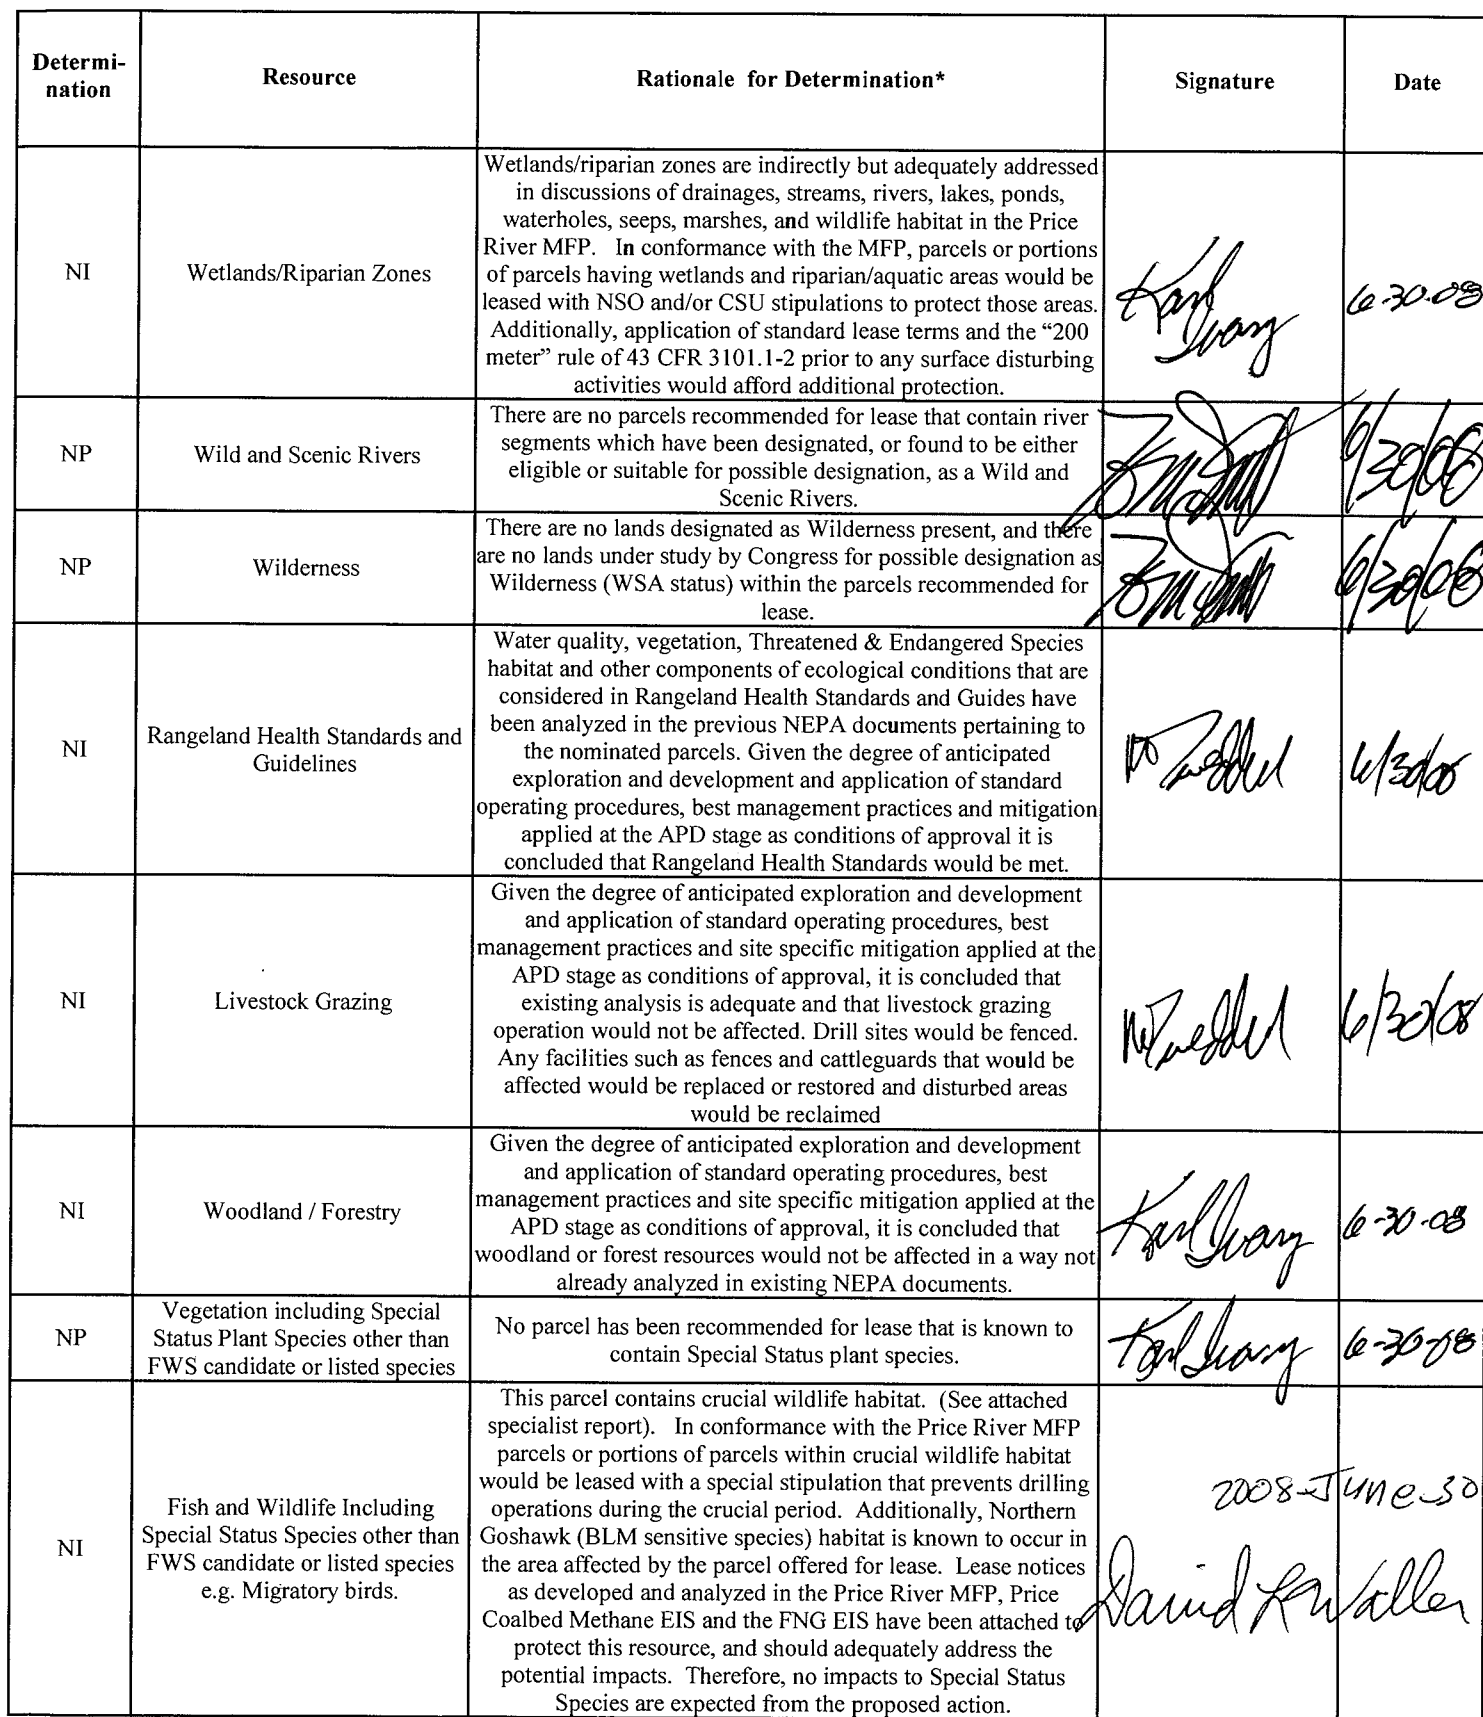 Determi-
nation
Resource
Rationale for Determination*
Signature
Date
NI
Wetlands/Riparian Zones
Wetlands/riparian zones are indirectly but adequately addressed
in discussions of drainages, streams, rivers, lakes, ponds,
waterholes, seeps, marshes, and wildlife habitat in the Price
River MFP. In conformance with the MFP, parcels or portions
of parcels having wetlands and riparian/aquatic areas would be
leased with NSO and/or CSU stipulations to protect those areas.
Additionally, application of standard lease terms and the “200
meter” rule of 43 CFR 3101.1-2 prior to any surface disturbing
activities would afford additional protection.
Karl
Ivory
6-30-08
NP
Wild and Scenic Rivers
There are no parcels recommended for lease that contain river
segments which have been designated, or found to be either
eligible or suitable for possible designation, as a Wild and
Scenic Rivers.
6/30/08
NP
Wilderness
There are no lands designated as Wilderness present, and there
are no lands under study by Congress for possible designation as
Wilderness (WSA status) within the parcels recommended for
lease.
6/30/08
NI
Rangeland Health Standards and
Guidelines
Water quality, vegetation, Threatened & Endangered Species
habitat and other components of ecological conditions that are
considered in Rangeland Health Standards and Guides have
been analyzed in the previous NEPA documents pertaining to
the nominated parcels. Given the degree of anticipated
exploration and development and application of standard
operating procedures, best management practices and mitigation
applied at the APD stage as conditions of approval it is
concluded that Rangeland Health Standards would be met.
6/30/08
NI
Livestock Grazing
Given the degree of anticipated exploration and development
and application of standard operating procedures, best
management practices and site specific mitigation applied at the
APD stage as conditions of approval, it is concluded that
existing analysis is adequate and that livestock grazing
operation would not be affected. Drill sites would be fenced.
Any facilities such as fences and cattleguards that would be
affected would be replaced or restored and disturbed areas
would be reclaimed
6/30/08
NI
Woodland / Forestry
Given the degree of anticipated exploration and development
and application of standard operating procedures, best
management practices and site specific mitigation applied at the
APD stage as conditions of approval, it is concluded that
woodland or forest resources would not be affected in a way not
already analyzed in existing NEPA documents.
Karl Ivory
6-30-08
NP
Vegetation including Special
Status Plant Species other than
FWS candidate or listed species
No parcel has been recommended for lease that is known to
contain Special Status plant species.
Karl Ivory
6-30-08
NI
Fish and Wildlife Including
Special Status Species other than
FWS candidate or listed species
e.g. Migratory birds.
This parcel contains crucial wildlife habitat. (See attached
specialist report). In conformance with the Price River MFP
parcels or portions of parcels within crucial wildlife habitat
would be leased with a special stipulation that prevents drilling
operations during the crucial period. Additionally, Northern
Goshawk (BLM sensitive species) habitat is known to occur in
the area affected by the parcel offered for lease. Lease notices
as developed and analyzed in the Price River MFP, Price
Coalbed Methane EIS and the FNG EIS have been attached to
protect this resource, and should adequately address the
potential impacts. Therefore, no impacts to Special Status
Species are expected from the proposed action.
2008-June-30
David L Waller